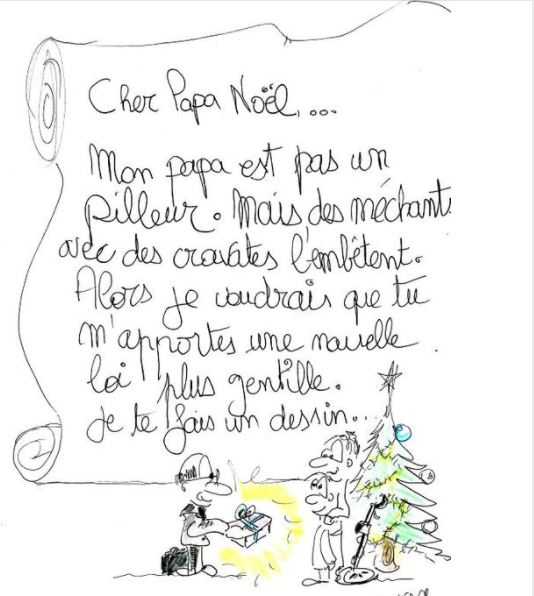 Cher Papa Noël, ...
Mon papa est pas un
pilleur. Mais des méchants
avec des cravates l'embêtent.
Alors je voudrais que tu
m'apportes une nouvelle
loi plus gentille.
Je te fais un dessin...